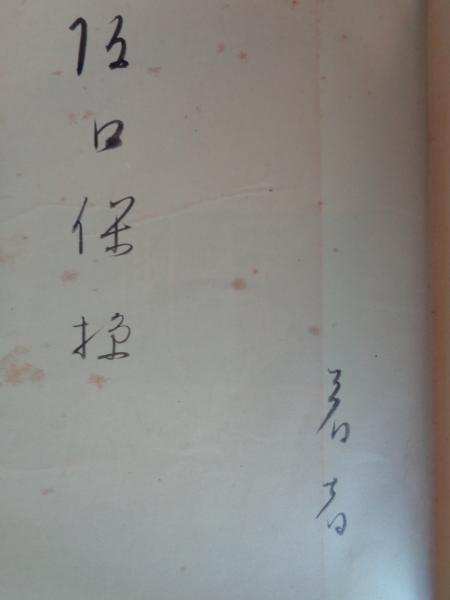 著者
阪口保様